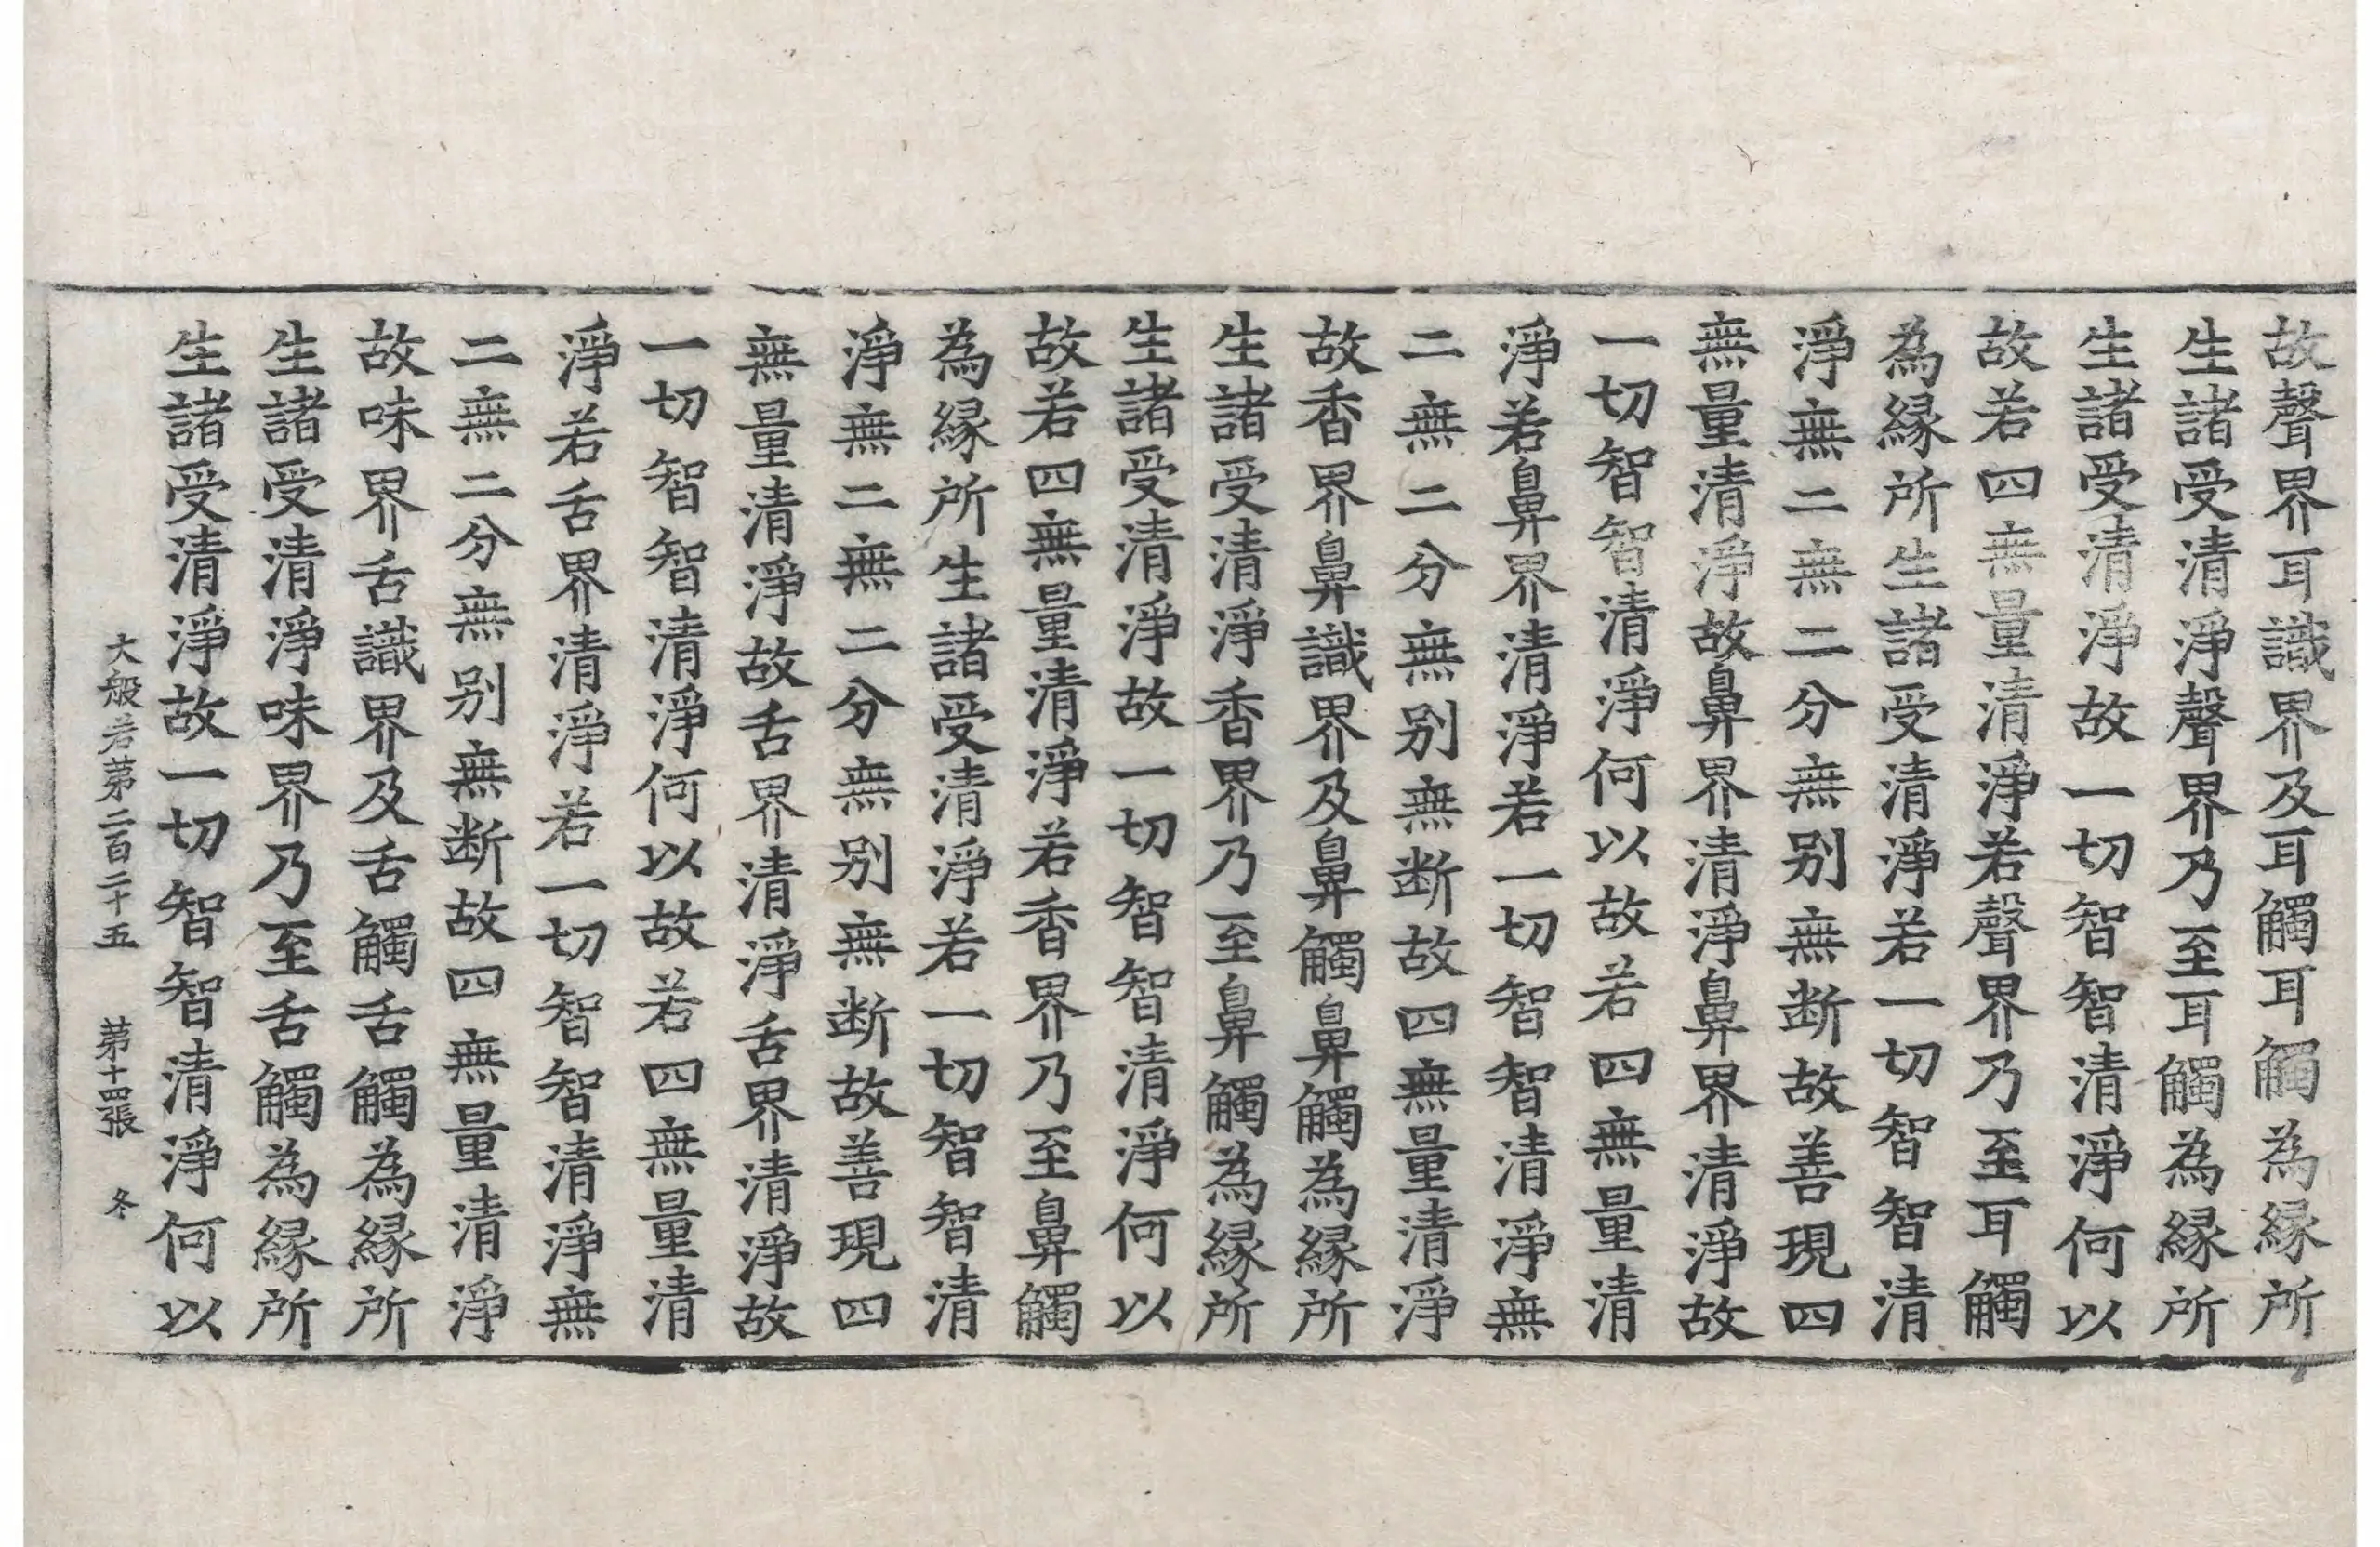 故聲界耳識界及耳觸耳觸為緣所
生諸受清淨聲界乃至耳觸為緣所
生諸受清淨故一切智智清淨何以
故若四無量清淨若聲界乃至耳觸
為緣所生諸受清淨若一切智智清
淨無二無二分無別無斷故善現四
無量清淨故鼻界清淨鼻界清淨故
一切智智清淨何以故若四無量清
淨若鼻界清淨若一切智智清淨無
二無二分無別無斷故四無量清淨
故香界鼻識界及鼻觸鼻觸為緣所
生諸受清淨香界乃至鼻觸為緣所
生諸受清淨故一切智智清淨何以
故若四無量清淨若香界乃至鼻觸
為緣所生諸受清淨若一切智智清
淨無二無二分無別無斷故善現四
無量清淨故舌界清淨舌界清淨故
一切智智清淨何以故若四無量清
淨若舌界清淨若一切智智清淨無
二無二分無別無断故四無量清淨
故味界舌識界及舌觸舌觸為緣所
生諸受清淨味界乃至舌觸為緣所
生諸受清淨故一切智智清淨何以
大般若第二百二十五 第十四張 冬